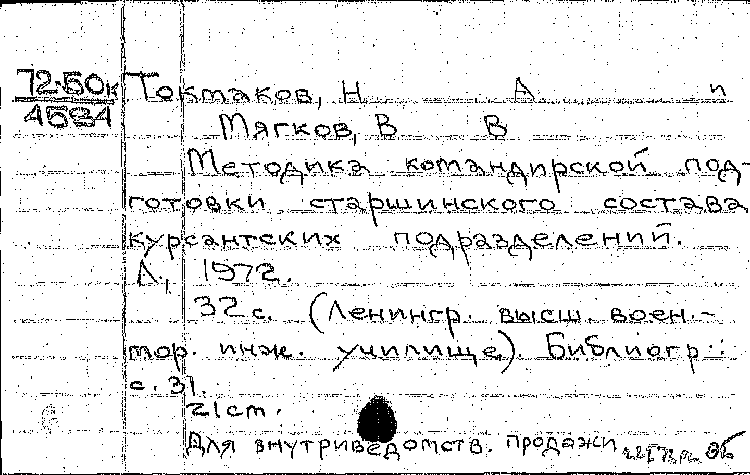 72-50к Токтаков, Н А и
4584 Мягков, В В
Методика командирской под-
готовки старшинского состава
курсантских подразделений.
Л., 1972.
32 с. (Ленингр. высш. воен.-
мор. инж. училище). Библиогр.:
с. 31.
21cm.
Для внутриведомств. продажи